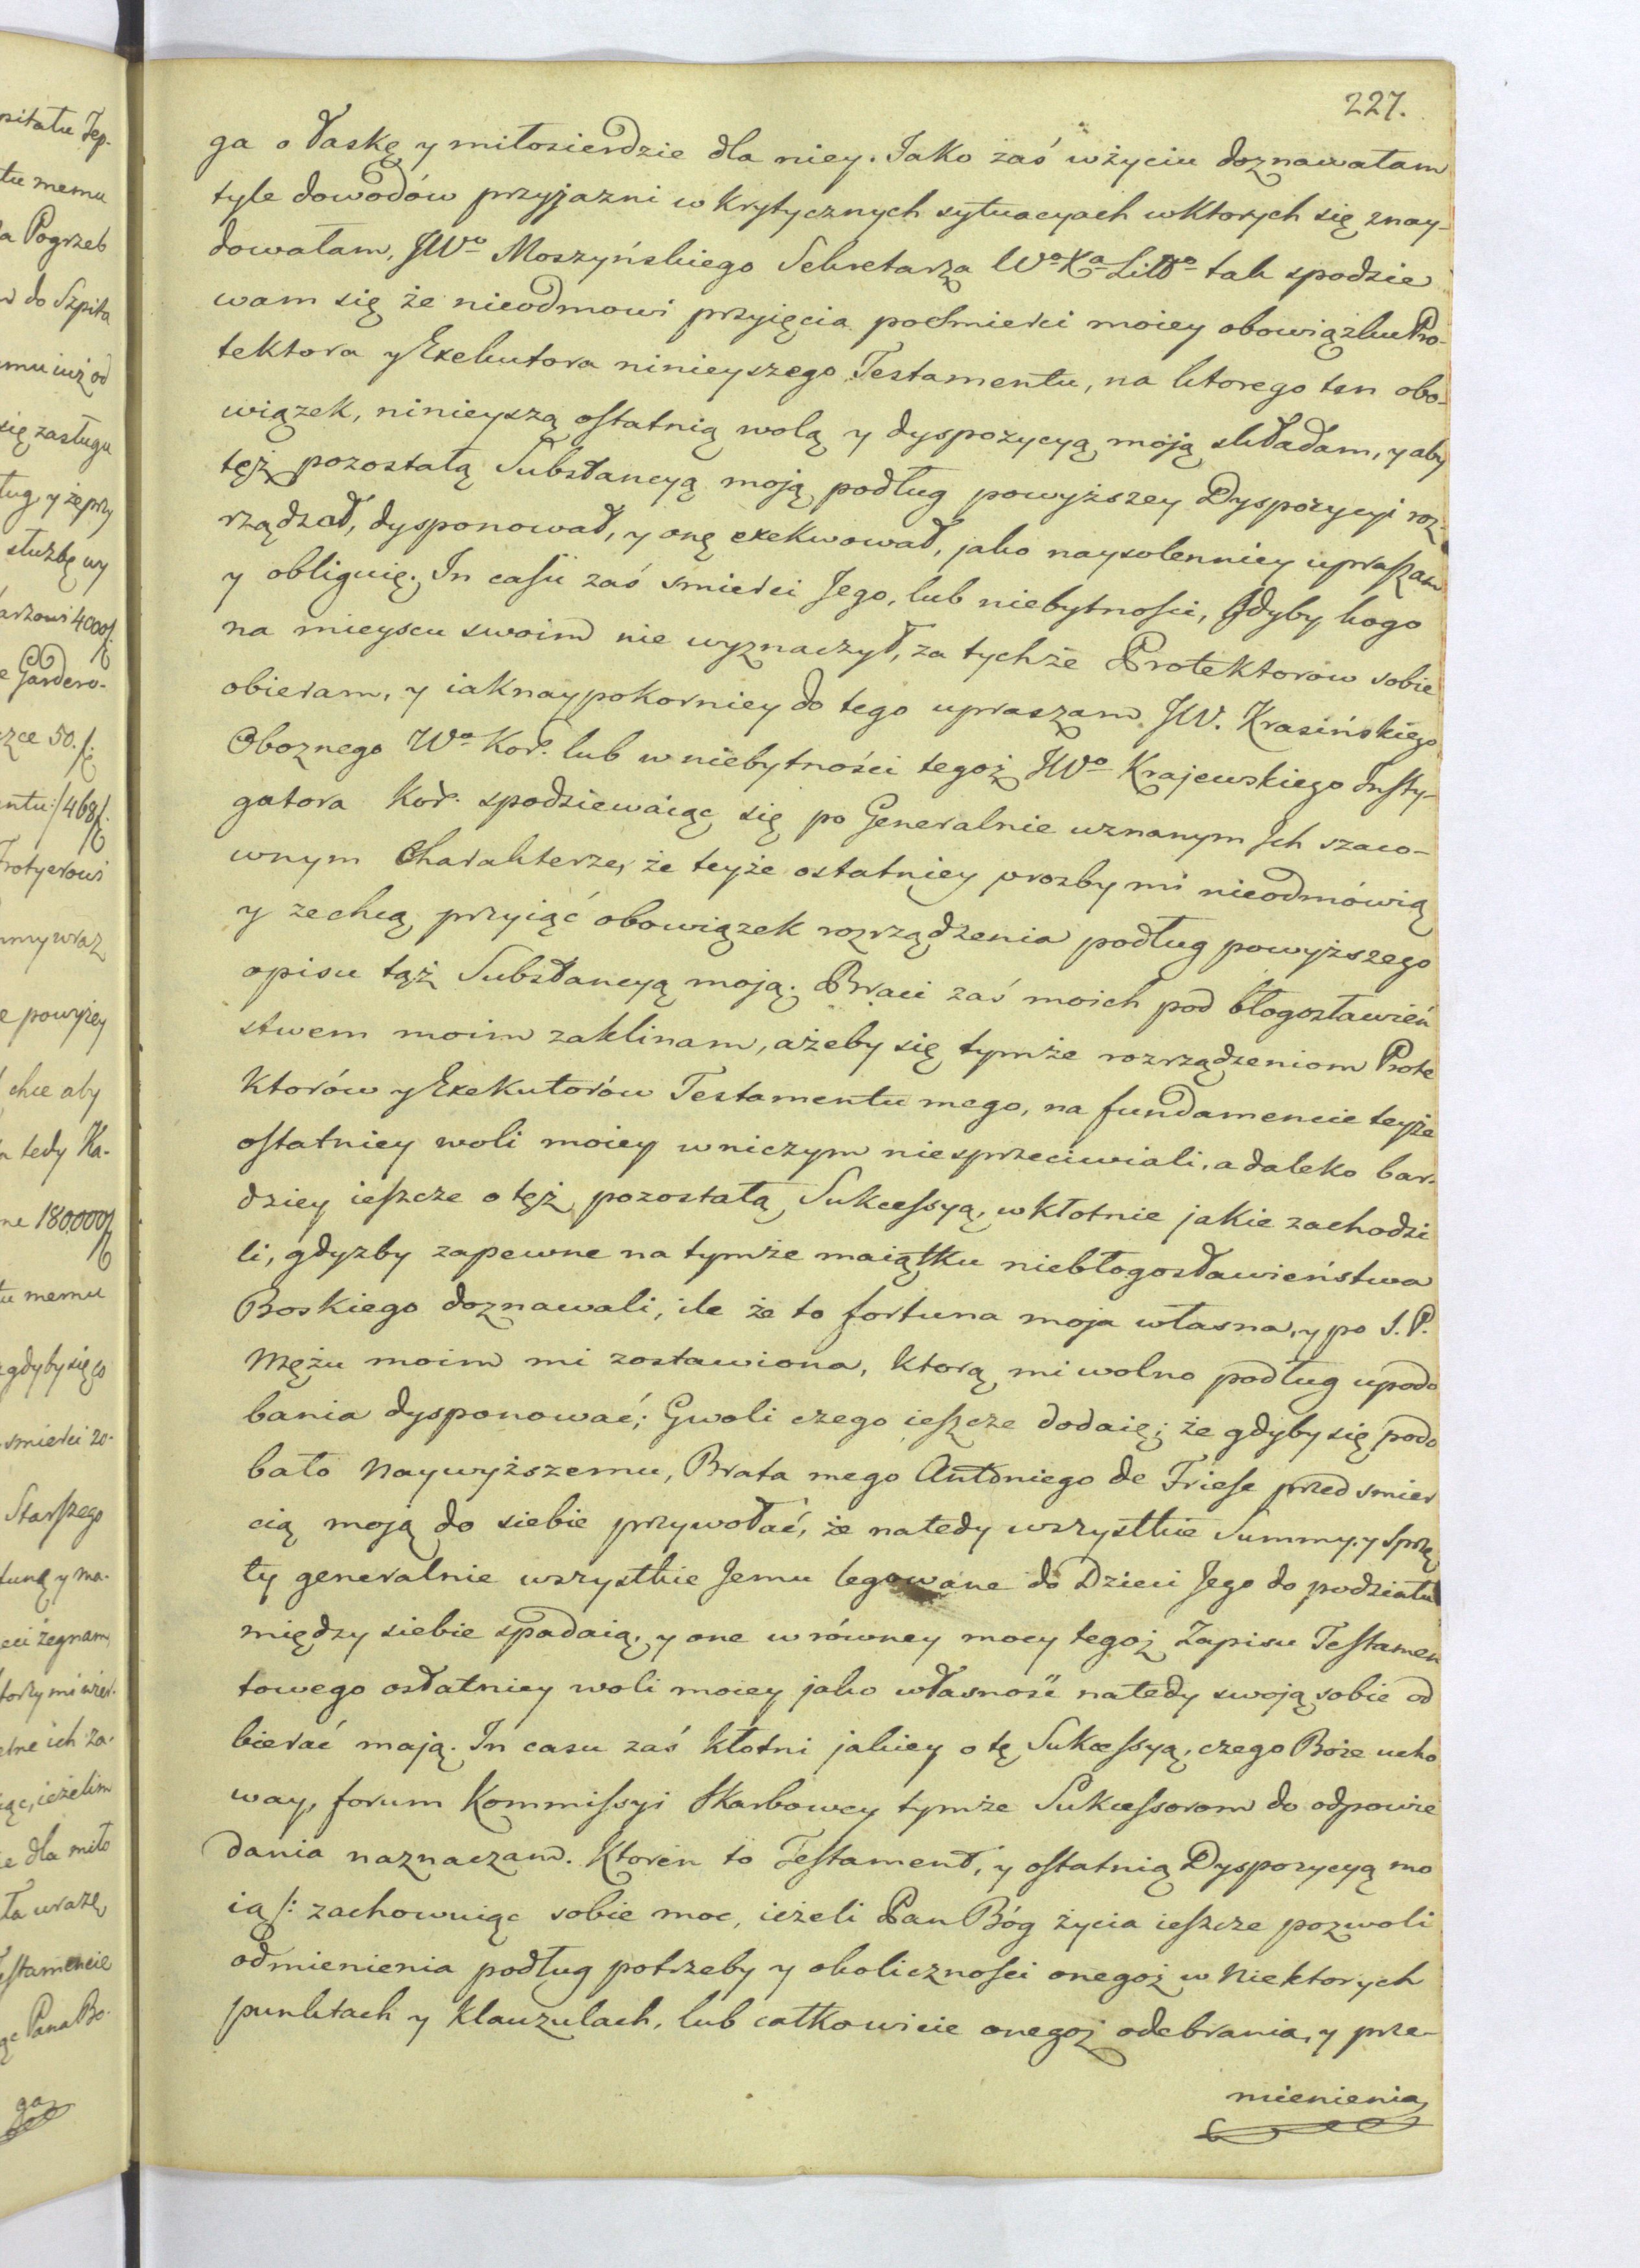 227.
ga o łaskę y miłosierdzie dla niey. Jako zaś w życiu doznawałam
tyle dowodów przyjazni w krytycznych sytuacyach w ktorych się znay-
dowałam, JWo Moszyńskiego Sekretarza Wo Ka Litto tak spodzie
wam się że nieodmowi przyięcia po Smierci moiey obowiązku Pro-
tektora y Exekutora ninieyszego Testamentu, na ktorego ten obo-
wiązek, ninieyszą ostatnią wolą y dyspozycyą moją składam, y aby
tęż pozostałą Substancyą moją podług powyższey Dyspozycyi roz-
rządzał, dysponował, y onę exekwował, jako naysolenniey upraszam
y obliguię. In casu zaś smierci Jego, lub niebytności, Gdyby kogo
na mieyscu swoim nie wyznaczył, za tychże Protektorow sobie
obieram, y iaknaypokorniey do tego upraszam JW. Krasińskiego
Oboznego Wo Kor. lub w niebytności tegoż JWo Krajewskiego Insty-
gatora Kor. spodziewaiąc się po Generalnie uznanym Ich szaco-
wnym Charakterze, że teyże ostatniey prozby mi nieodmówią
y zechcą przyiąć obowiązek rozrządzenia podług powyższego
opisu tąż Substancyą moją. Braci zaś moich pod błogosławień
stwem moim zaklinam, ażeby się tymże rozrządzeniom Prote
ktorów y Exekutorów Testamentu mego, na fundamencie teyże
ostatniey woli moiey w niczym niesprzeciwiali, a daleko bar-
dziey ieszcze o tęż pozostałą Sukcessyą, w kłotnie jakie zachodzi
li, gdyżby zapewne na tymże maiątku niebłogosławieństwa
Boskiego doznawali, ile że to fortuna moja własna, y po S. P.
Mężu moim mi zostawiona, ktorą mi wolno podług upodo
bania dysponować; Gwoli czego ieszcze dodaię; że gdyby się podo
bało Naywyższemu, Brata mego Antoniego de Friese przed smier
cią moją do siebie przywołać, że natedy wszystkie Summy y sprzę
ty generalnie wszystkie Jemu legowane do Dzieci Jego do podziału
między siebie spadaią, y one w równey mocy tegoż Zapisu Testamen
towego ostatniey woli moiey jako własność natedy swoją sobie od
bierać mają. In casu zaś kłotni jakiey o tę Sukcessyą, czego Boże ucho
way, forum Kommissyi Skarbowey tymże Sukcessorom do odpowie
dania naznaczam. Ktoren to Testament, y ostatnią Dyspozycyą mo
ią /: zachowuiąc sobie moc, ieżeli Pan Bóg życia ieszcze pozwoli
odmienienia podług potrzeby y okoliczności onegoż w niektorych
punktach y klauzulach, lub całkowicie onegoż odebrania, y prze-
mienienia